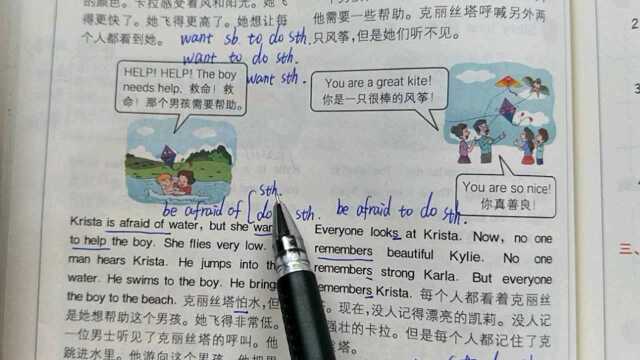 的颜色。卡拉感受着风和阳光。她飞
得更快了。她飞得更高了。她想让每
个人都看到她。
want sb. to do sth.
want to do sth.
want sth.
他需要一些帮助。克丽丝塔呼喊另外两
只风筝，但是她们听不见。
HELP! HELP! The boy
needs help. 救命！救
命！那个男孩需要帮助。
You are a great kite!
你是一只很棒的风筝！
You are so nice!
你真善良！
be afraid of sth.
do sth.
be afraid to do sth.
Krista is afraid of water, but she
to help the boy. She flies very low.
man hears Krista. He jumps into the
water. He swims to the boy. He brings
the boy to the beach. 克丽丝塔怕水，但
是她想帮助这个男孩。她飞得非常低。
一位男士听见了克丽丝塔的呼叫。他
跳进水里。他游向这个男孩。他把男
Everyone looks at Krista. Now, no one
remembers beautiful Kylie. No one
remembers strong Karla. But everyone
remembers Krista. 每个人都看着克丽丝
塔。现在，没人记得漂亮的凯莉。没人记
强壮的卡拉。但是每个人都记住了克
丝塔。
2
三、